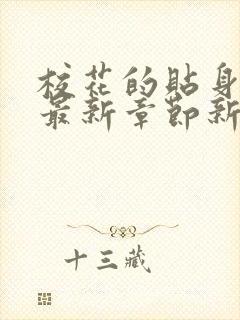 校花的贴身
最新章节新
十三藏